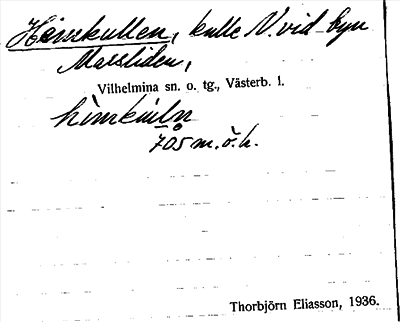 Hömkullen, kulle N. vid byn
Marsliden,
Vilhelmina sn. o. tg., Västerb. l.
705 m. ö. h.
Thorbjörn Eliasson, 1936.